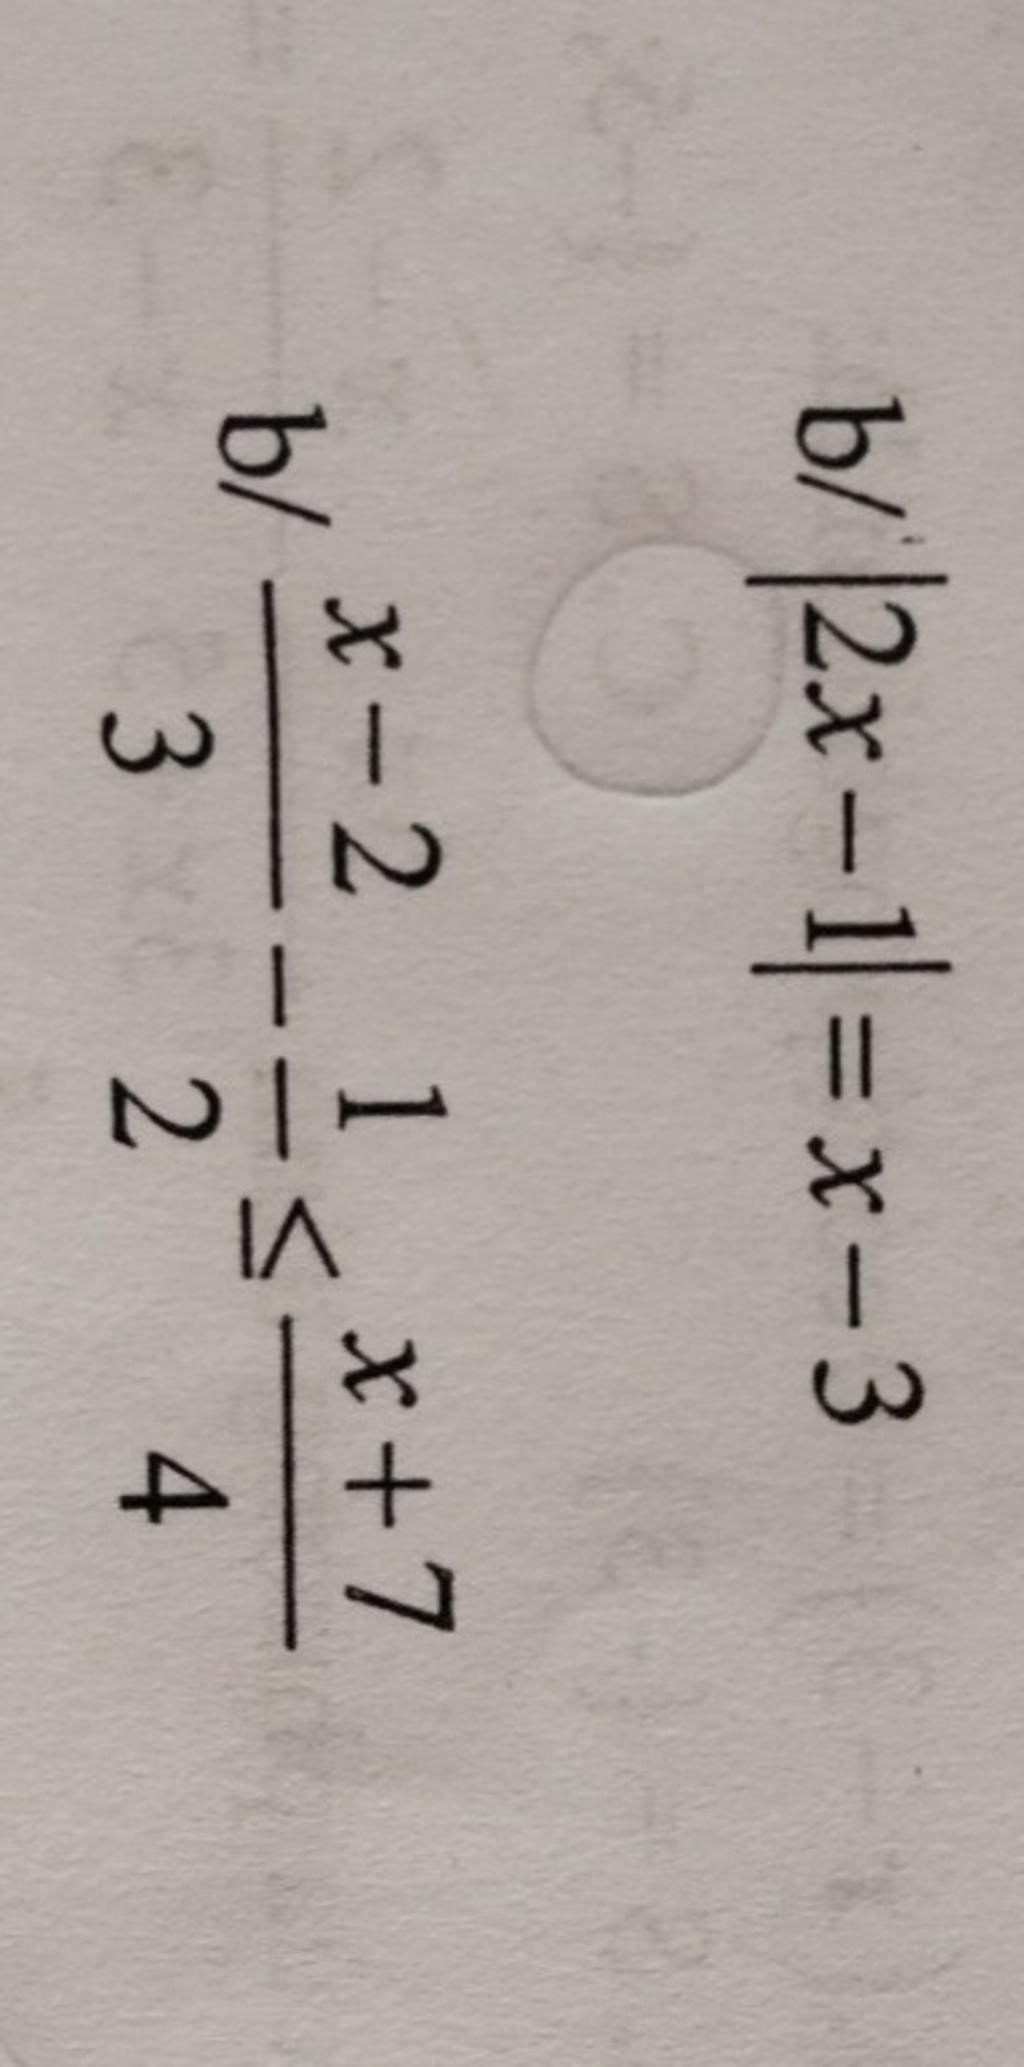 b/ |2x − 1| = x − 3
b/ \frac{x-2}{3} - \frac{1}{2} \leq \frac{x+7}{4}